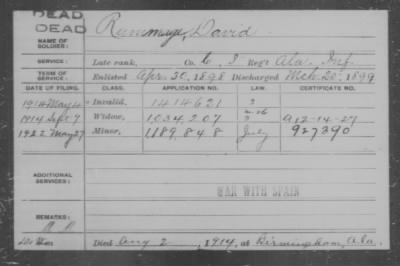 DEAD
DEAD
NAME OF SOLDIER: David
SERVICE: Late rank, Co. C, 3, Reg't Ala. Inf.
TERM OF SERVICE: Enlisted Apr. 30, 1898 Discharged Mch. 20, 1899
DATE OF FILING. CLASS. APPLICATION NO. LAW. CERTIFICATE NO.
1914 May 4 Invalid. 1414621
1914 Sept 9 Widow, 1034,207 a 12-14-27
1922 May 27 Minor, 1189,848 July 927390
ADDITIONAL SERVICES:
WAR WITH SPAIN
REMARKS:
Died Aug 2, 1914, at Birmingham, Ala.